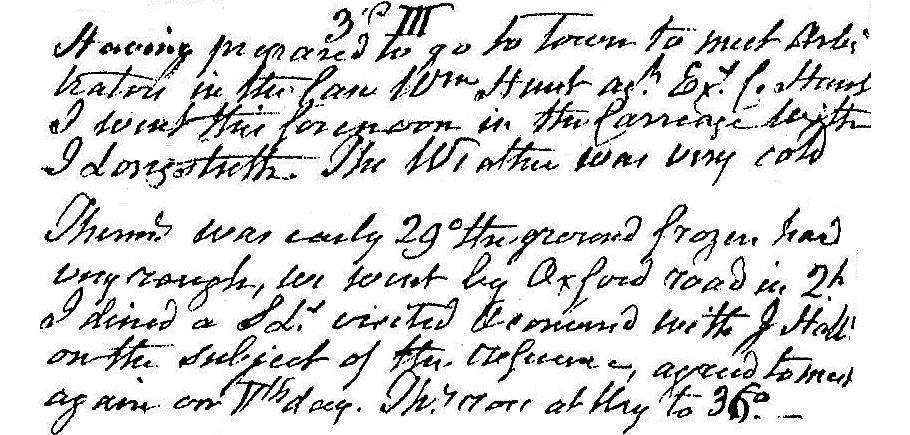 3d III
Having prepared to go to town to meet Arbi
trators in the Case Wm Hunt agt. Exr. C. Hunt
I went this forenoon in the Carriage with
I Longstreth. The Weather was very cold
Thermr. was early 29° the ground frozen hard
very rough, we went by Oxford road in 2h
I dined a S Ls. visited & conversed with J Hall
on the subject of the, agreed to meet
again on Vth day. Thr. rose at they to 36°. –